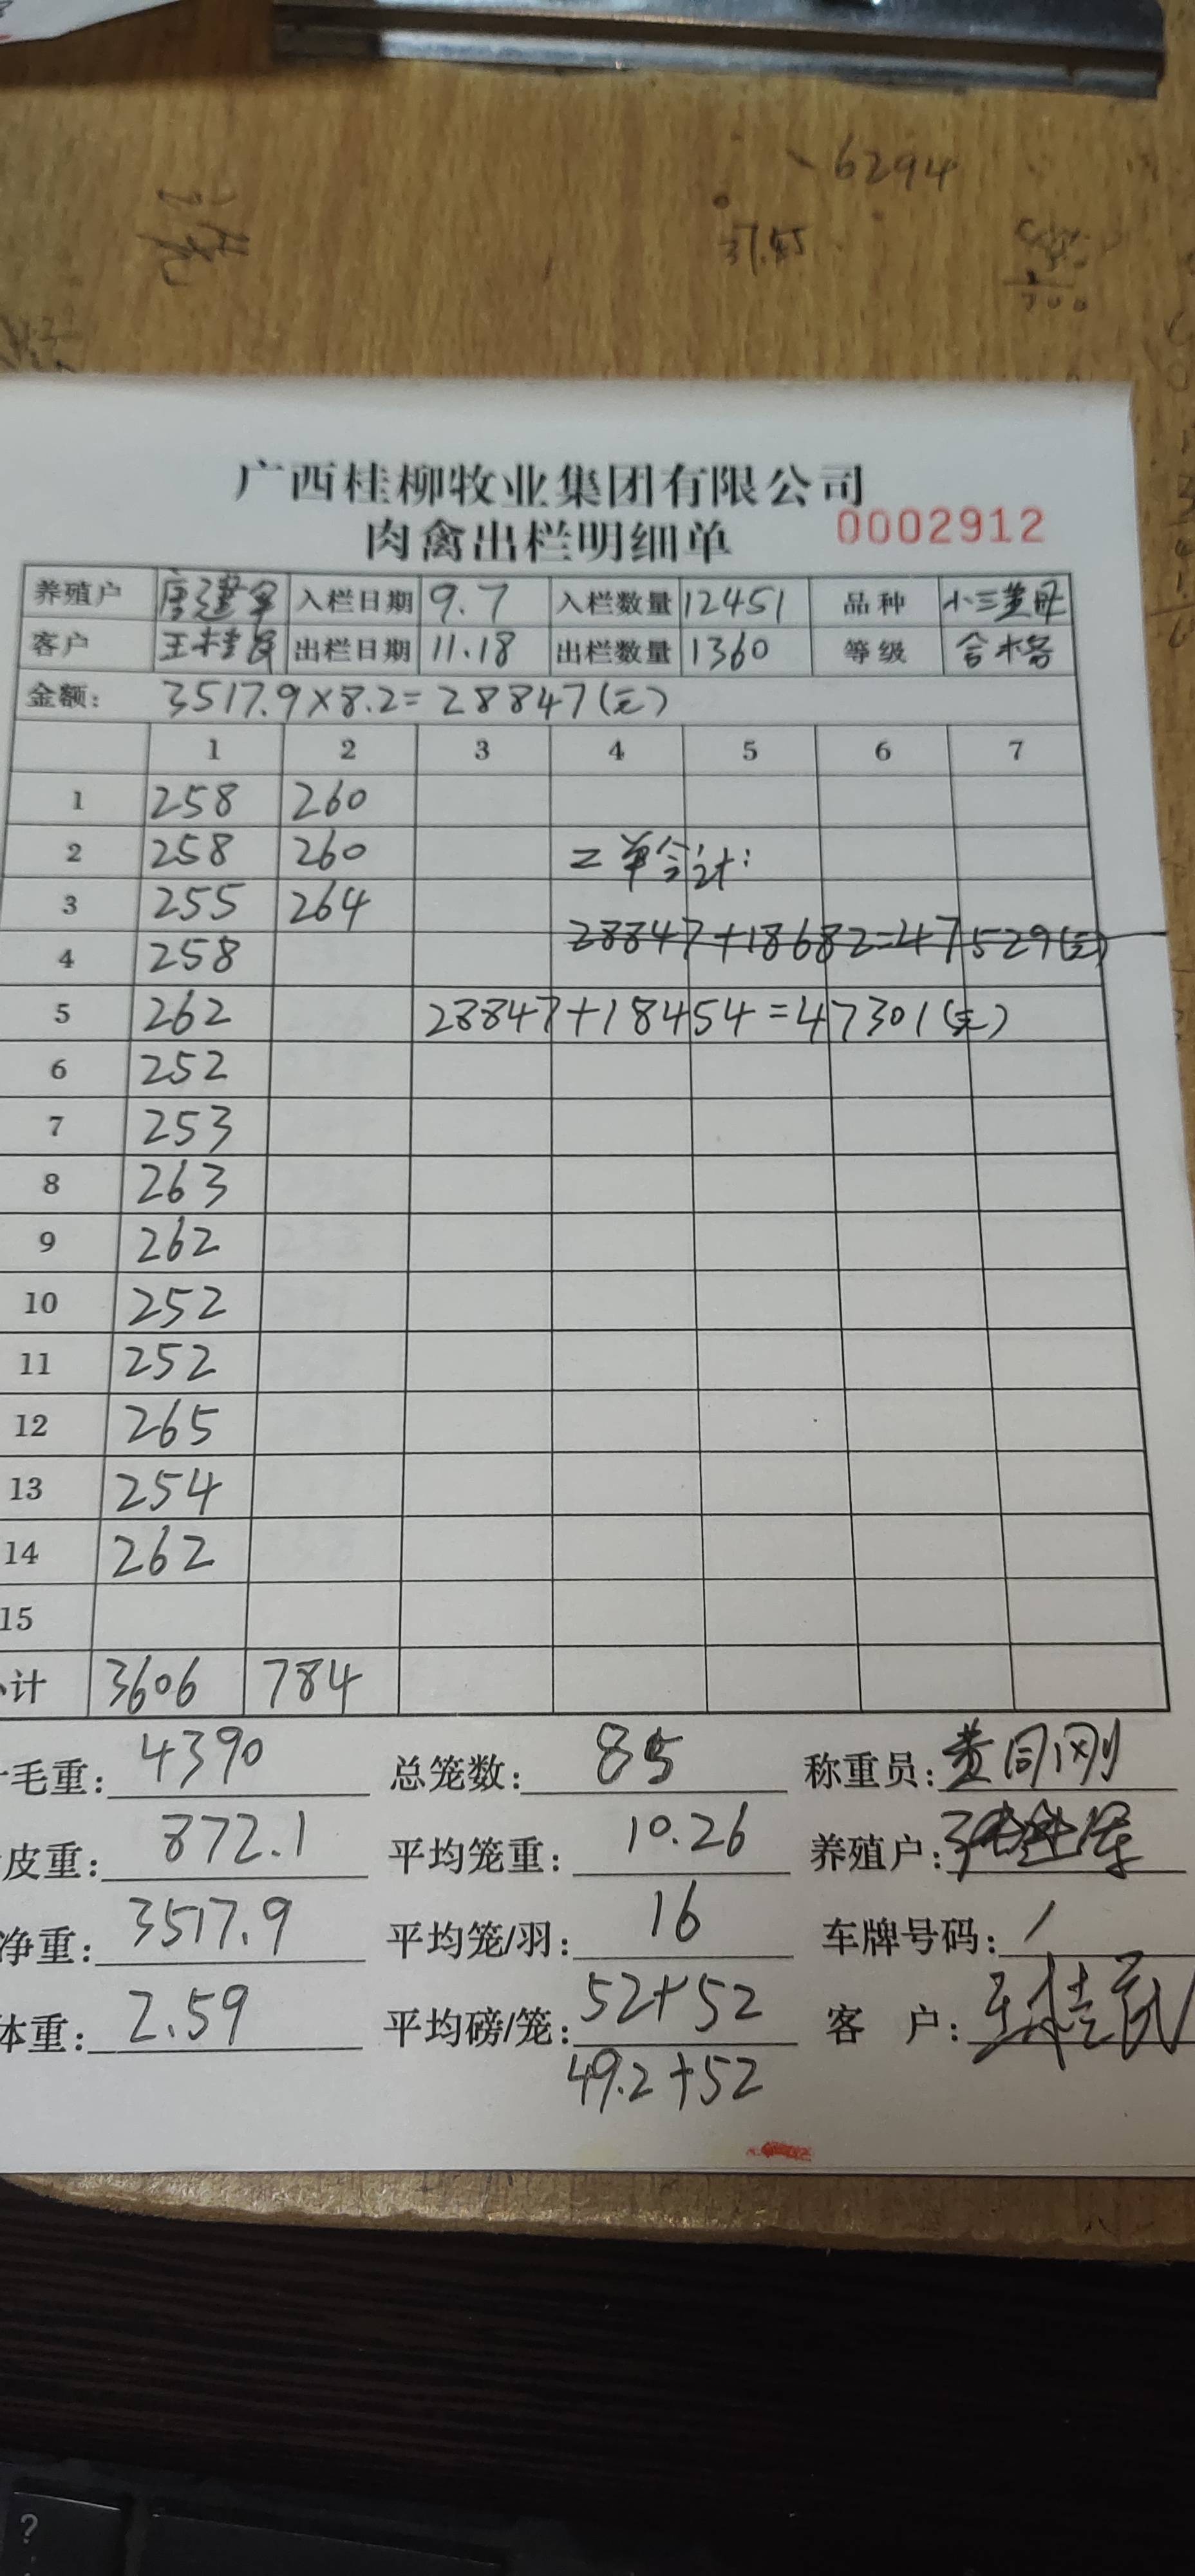 6294
37.45
700
广西桂柳牧业集团有限公司
肉禽出栏明细单 0002912
养殖户 唐建军 入栏日期 9.7 入栏数量 12451 品种 小三黄母
客户 王桂民 出栏日期 11.18 出栏数量 1360 等级 合格
金额: 3517.9×8.2=28847(元)
1 2 3 4 5 6 7
1 258 260
2 258 260 二单合计:
3 255 264
28847+18682=47529(元)
4 258
5 262 28847+18454=47301(元)
6 252
7 253
8 263
9 262
10 252
11 252
12 265
13 254
14 262
15
小计 3606 784
毛重: 4390 总笼数: 85 称重员: 黄同刚
皮重: 872.1 平均笼重: 10.26 养殖户:
净重: 3517.9 平均笼/羽: 16 车牌号码: /
体重: 2.59 平均磅/笼: 52+52 客 户: 王桂民
49.2+52
?